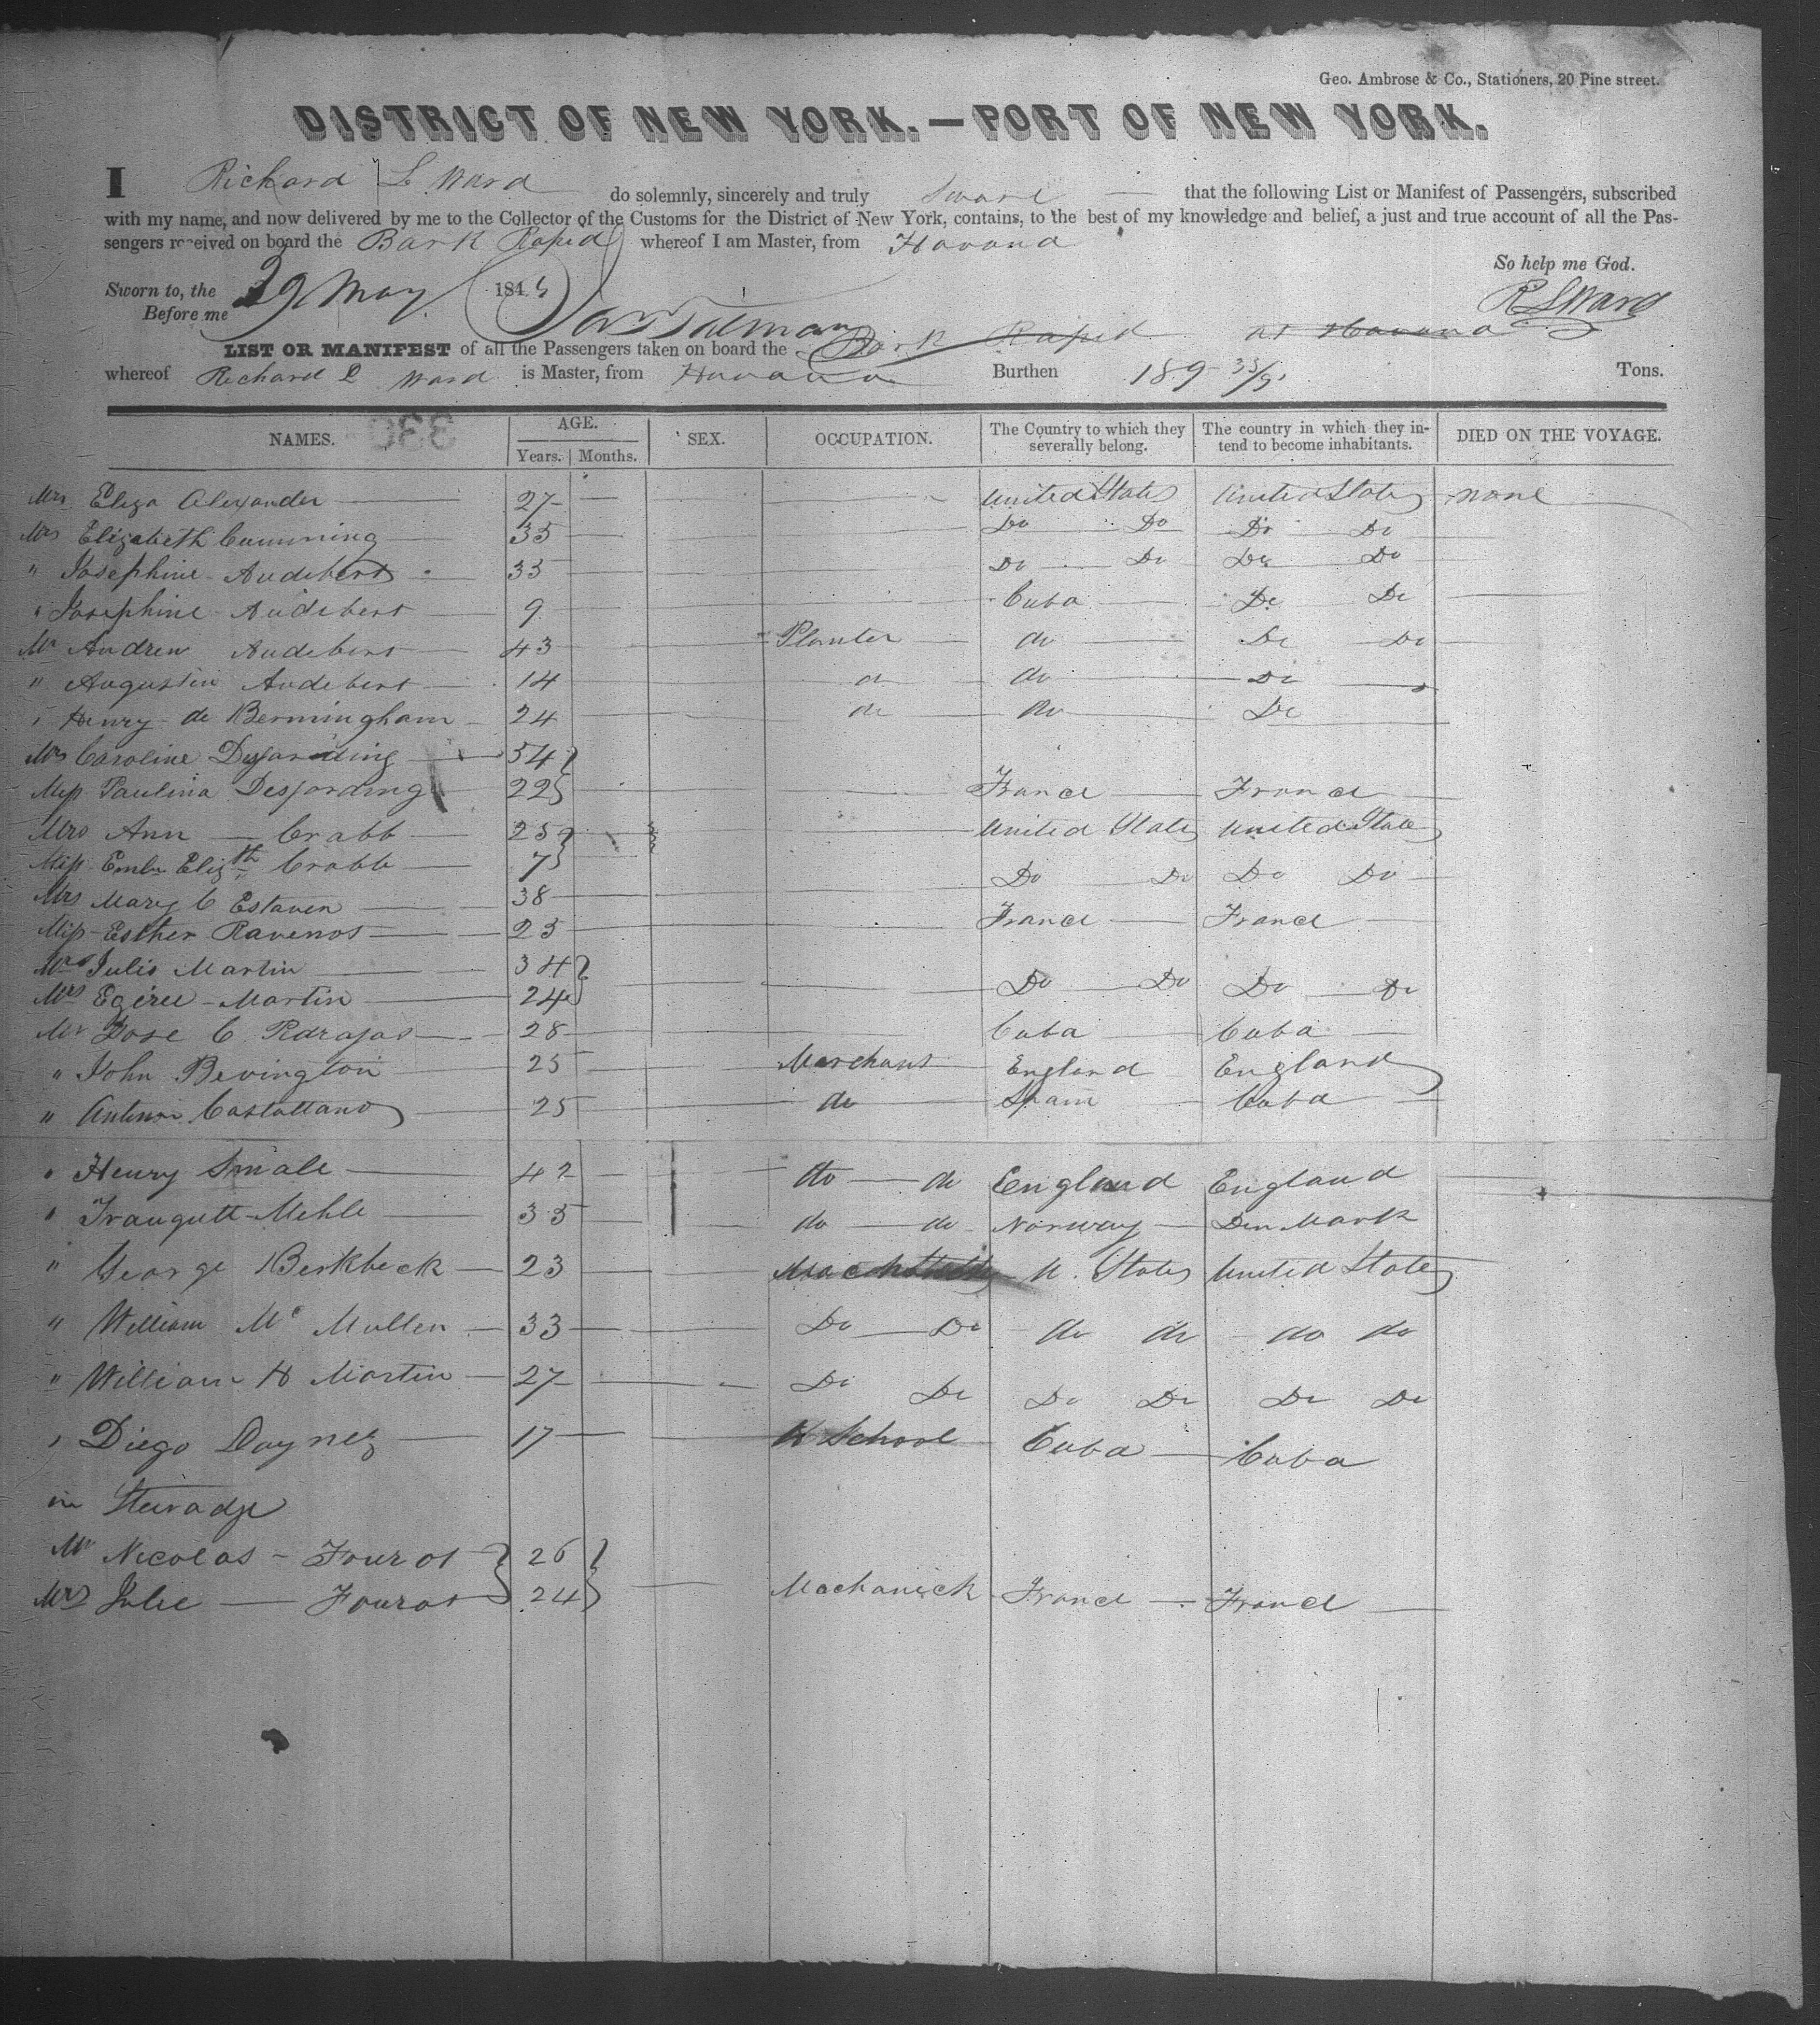 Geo. Ambrose & Co., Stationers, 20 Pine street.
DISTRICT OF NEW YORK.—PORT OF NEW YORK.
I Richard L Ward do solemnly, sincerely and truly Swear that the following List or Manifest of Passengers, subscribed
with my name, and now delivered by me to the Collector of the Customs for the District of New York, contains, to the best of my knowledge and belief, a just and true account of all the Pas-
sengers received on board the Bark Rapid whereof I am Master, from Havana
So help me God.
Sworn to, the 29 May 184
Before me
R L Ward
LIST OR MANIFEST of all the Passengers taken on board the Bark Rapid at Havana
whereof Richard L Ward is Master, from Havana Burthen 189 Tons.
330
NAMES. AGE. SEX. OCCUPATION. The Country to which they severally belong. The country in which they intend to become inhabitants. DIED ON THE VOYAGE.
Years. Months.
Mrs Eliza Alexander 27 United States United States none
Mrs Elizabeth Cumming 35 Do Do Do Do
" Josephine Audebert 33 Do Do Do Do
" Josephine Audebert 9 Cuba Do Do
Mr Andrew Audebert 43 Planter do Do Do
" Augustin Audebert 14 do do Do
" Henry de Bermingham 24 do do Do
Mrs Caroline Desjarding 54
Miss Paulina Desjarding 22 France France
Mrs Ann Crabb 25 United States United States
Miss Eliz'th Crabb 7 Do Do Do Do
Mrs Mary C Estaven 38
Miss Esther Ravenos 23 France France
Julis Martin 34
Mrs Martin 24 Do Do Do Do
Mr Jose C 28 Cuba Cuba
" John Bevington 25 Merchant England England
" Castallano 25 do Spain Cuba
" Henry Smale 42 do do England England
" Traugutt Mehle 35 do do Norway Denmark
" George Berkbeck 23 U. States United States
" William Mc Mullen 33 Do Do do do do do
" William H Martin 27 Do Do Do Do Do Do
" Diego Daynez 17 School Cuba Cuba
in Steradge
Mr Nicolas Fourot 26
Mrs Julie Fourot 24 Mechanick France France